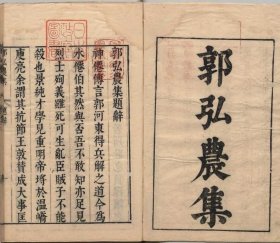 郭弘農集
郭弘農集題辭
神僊傳言郭河東得兵解之道今為
水僊伯其然與否吾不敢知亦足見
烈士殉義雖死可生亂臣賊子不能
殺也景純才學見重明帝埒於溫嶠
庾亮余謂其抗節王敦贊成大事匡